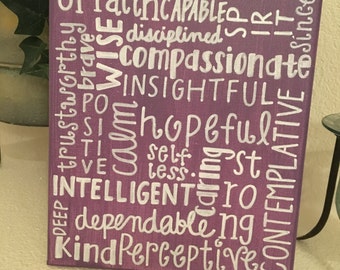 of faith
CAPABLE
SPIRIT
since
disciplined
trustworthy
brave
WISE
compassionate
INSIGHTFUL
POSITIVE
calm
hopeful
self
less
caring
strong
CONTEMPLATIVE
INTELLIGENT
DEEP
dependable
kind
Perceptive